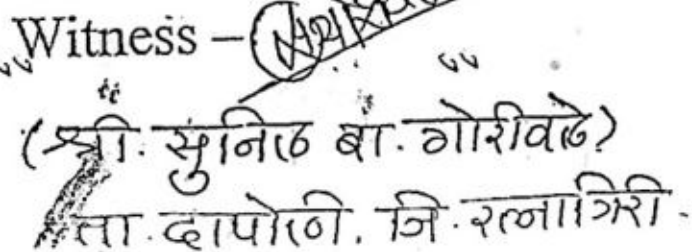 Witness –
(श्री. सुनिल बा. गोरीवले)
ता. दापोली. जि. रत्नागिरी.